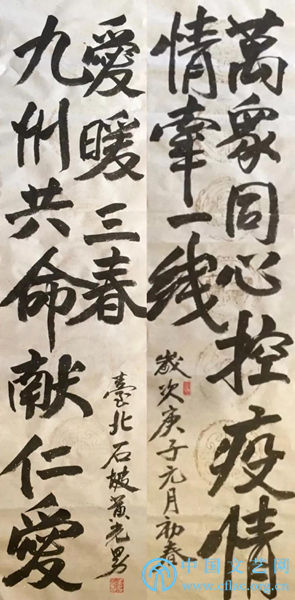 萬衆同心控疫情
情牽一綫
歲次庚子元月初春
九州共命献仁愛
愛暖三春
臺北石坡黃光男
中国文艺网
www.cflac.org.cn